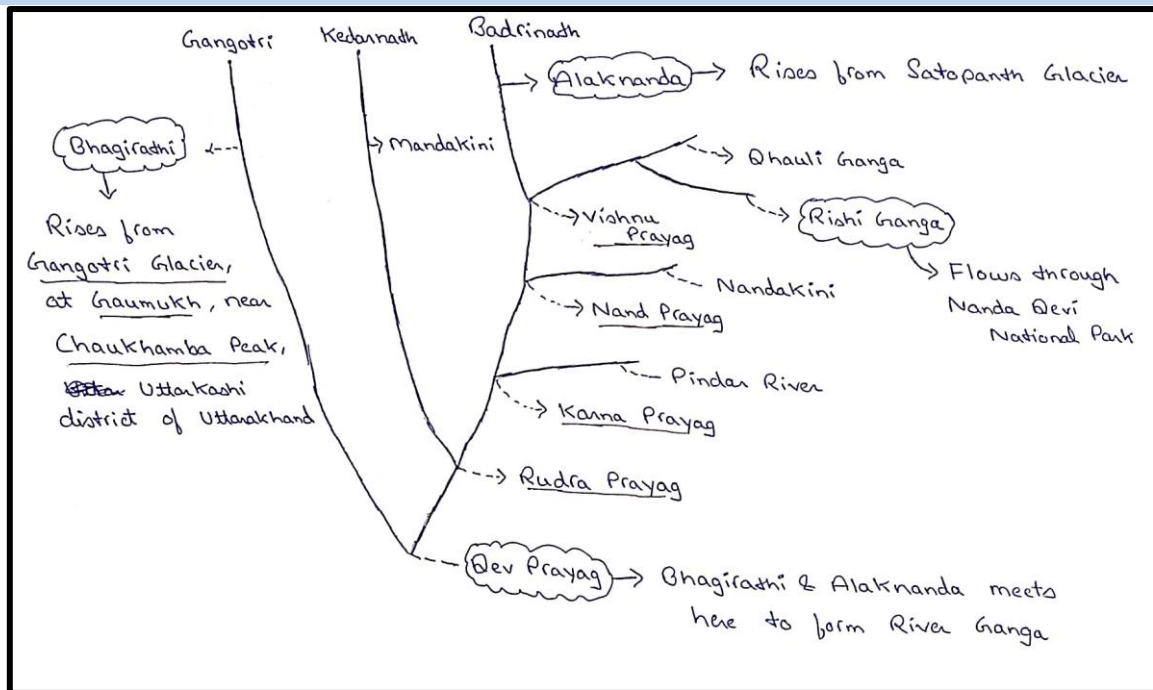 Gangotri
Kedarnath
Badrinath
Alaknanda
Rises from Satopanth Glacier
Bhagirathi
Mandakini
Dhauli Ganga
Rises from
Gangotri Glacier,
at Gaumukh, near
Chaukhamba Peak,
Uttarkashi
district of Uttarakhand
Vishnu
Prayag
Rishi Ganga
Flows through
Nanda Devi
National Park
Nandakini
Nand Prayag
Pindar River
Karna Prayag
Rudra Prayag
Dev Prayag
Bhagirathi & Alaknanda meets
here to form River Ganga